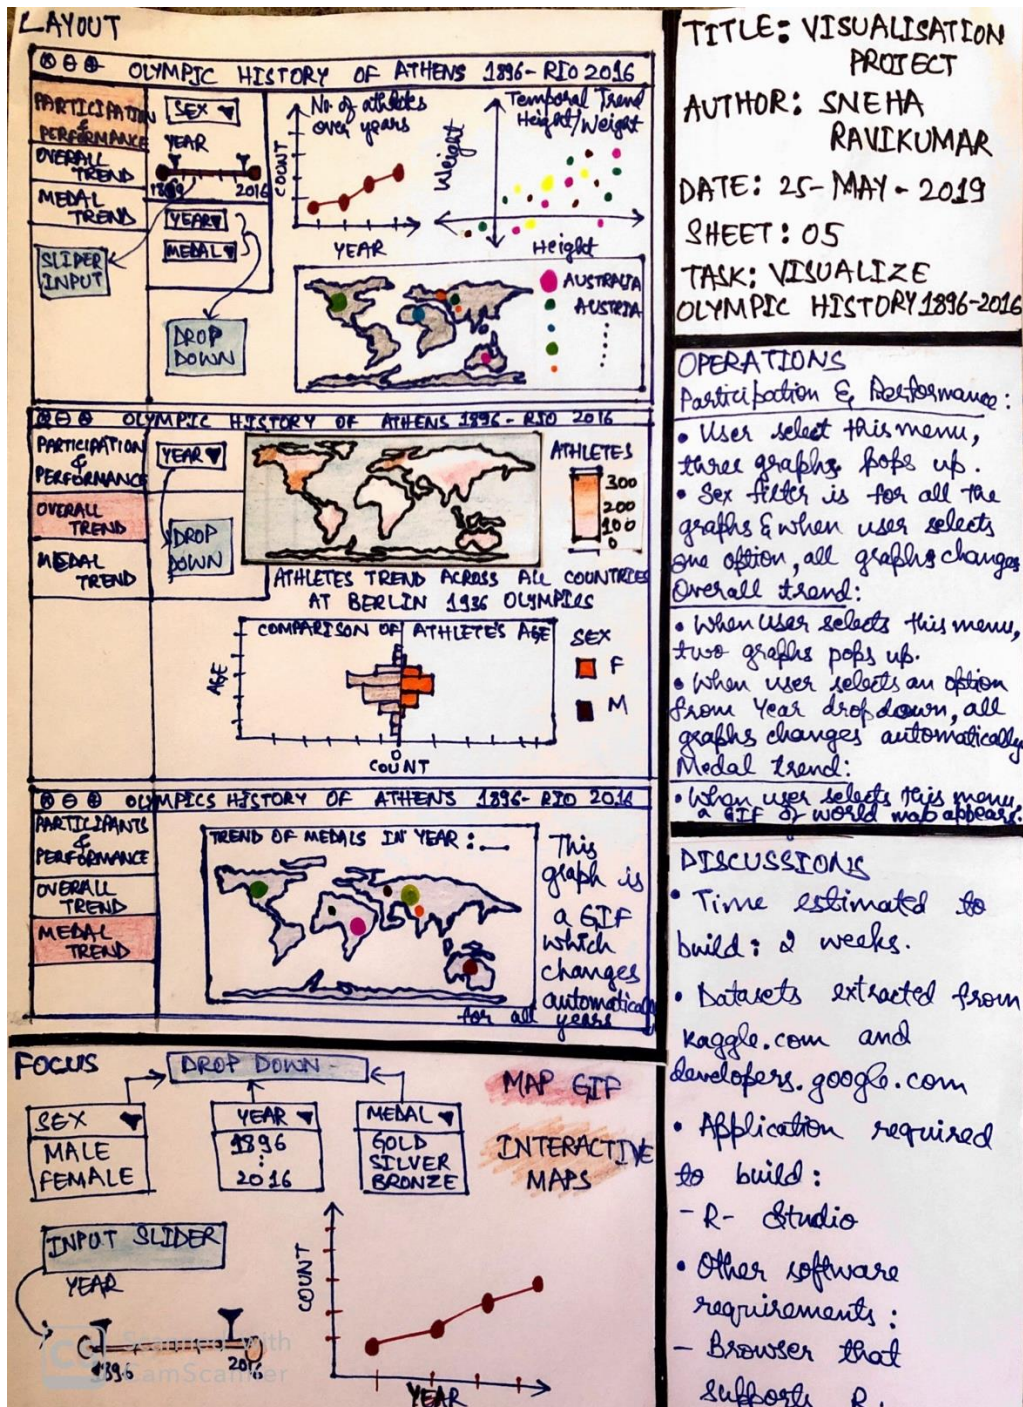 LAYOUT
OLYMPIC HISTORY OF ATHENS 1896-RIO 2016
PARTICIPATION
&
PERFORMANCE
OVERALL
TREND
MEDAL
TREND
SLIDER
INPUT
SEX
YEAR
1896 2016
YEAR
MEDAL
DROP
DOWN
No of athletes
over years
COUNT
YEAR
Temporal Trend
Height/Weight
Weight
Height
AUSTRALIA
AUSTRIA
OLYMPIC HISTORY OF ATHENS 1896-RIO 2016
PARTICIPATION
&
PERFORMANCE
OVERALL
TREND
MEDAL
TREND
YEAR
DROP
DOWN
ATHLETES
300
200
100
0
ATHLETES TREND ACROSS ALL COUNTRIES
AT BERLIN 1936 OLYMPICS
COMPARISON OF ATHLETE'S AGE
AGE
0
COUNT
SEX
F
M
OLYMPICS HISTORY OF ATHENS 1896-RIO 2016
PARTICIPANTS
&
PERFORMANCE
OVERALL
TREND
MEDAL
TREND
TREND OF MEDALS IN YEAR:__
This
graph is
a GIF
which
changes
automatically
for all years
FOCUS
DROP DOWN
SEX
MALE
FEMALE
YEAR
1896
⋮
2016
MEDAL
GOLD
SILVER
BRONZE
MAP GIF
INTERACTIVE
MAPS
INPUT SLIDER
YEAR
1896 2016
COUNT
YEAR
CS Scanned with
CamScanner
TITLE: VISUALISATION
PROJECT
AUTHOR: SNEHA
RAVIKUMAR
DATE: 25-MAY-2019
SHEET: 05
TASK: VISUALIZE
OLYMPIC HISTORY 1896-2016
OPERATIONS
Participation & Performance:
• User select this menu,
three graphs pops up.
• Sex filter is for all the
graphs & when user selects
one option, all graphs changes
Overall trend:
• When user selects this menu,
two graphs pops up.
• When user selects an option
from Year drop down, all
graphs changes automatically
Medal trend:
• When user selects this menu,
a GIF of world map appears.
DISCUSSIONS
• Time estimated to
build: 2 weeks.
• Datasets extracted from
kaggle.com and
developers.google.com
• Application required
to build:
- R- Studio
• Other software
requirements:
- Browser that
supports R.